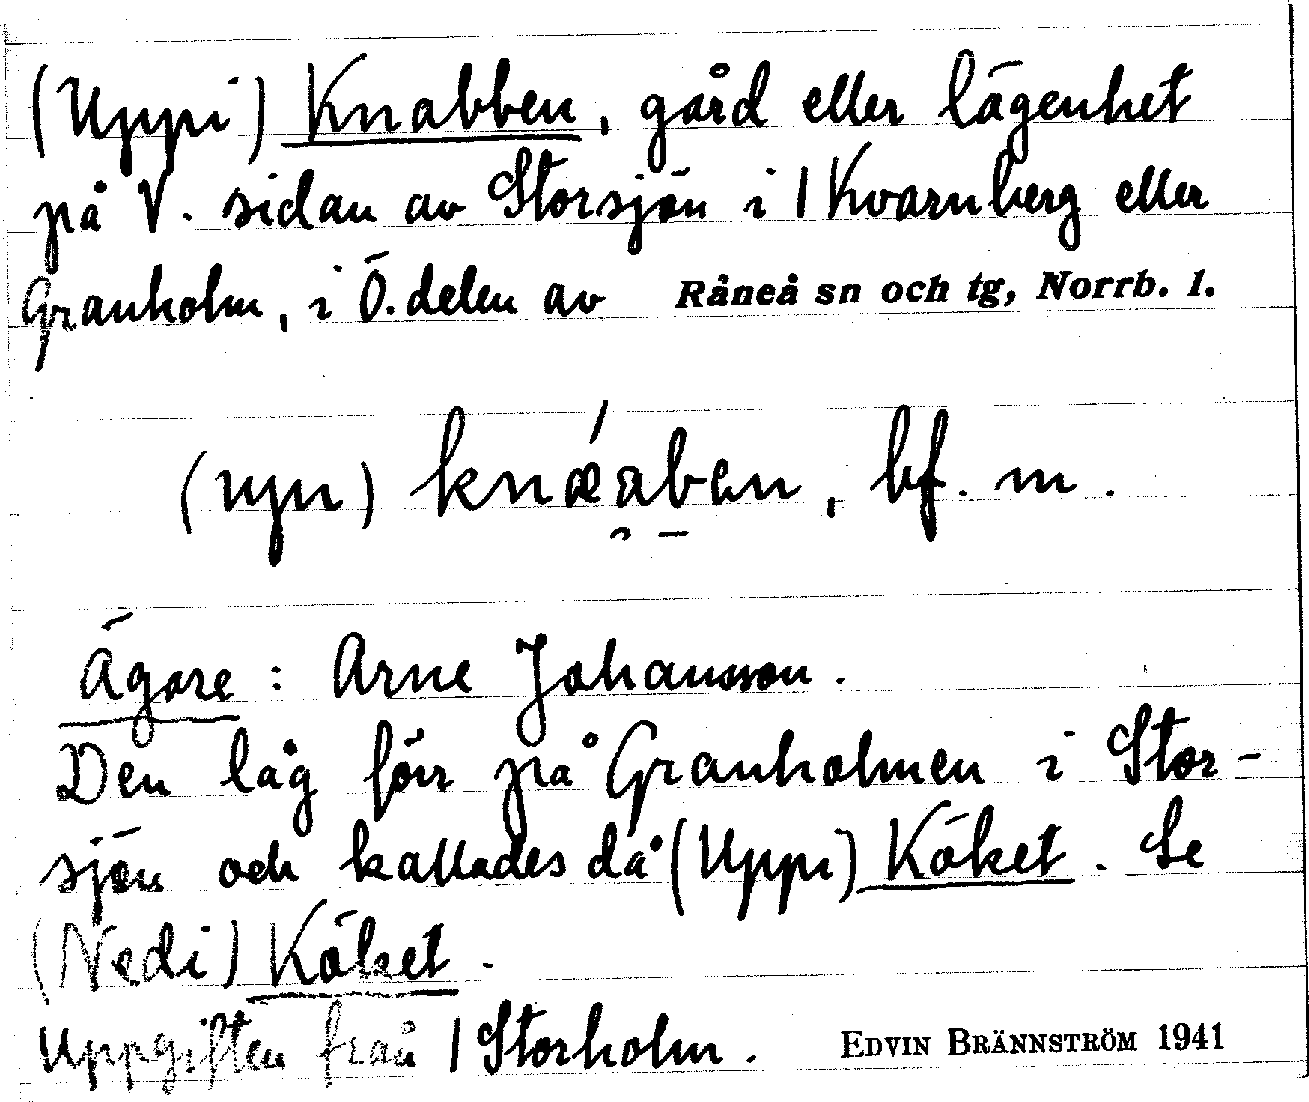 (Uppi) Knabben, gård eller lägenhet
på V. sidan av Storsjön i 1 Kvarnberg eller
Granholm, i Ö. delen av Råneå sn och tg, Norrb. l.
(upı) knǽaben, bf. m.
Ägare: Arne Johansson.
Den låg förr på Granholmen i Stor-
sjön och kallades då (Uppi) Köket. Se
(Nedi) Köket.
Uppgiften från 1 Storholm. EDVIN BRÄNNSTRÖM 1941